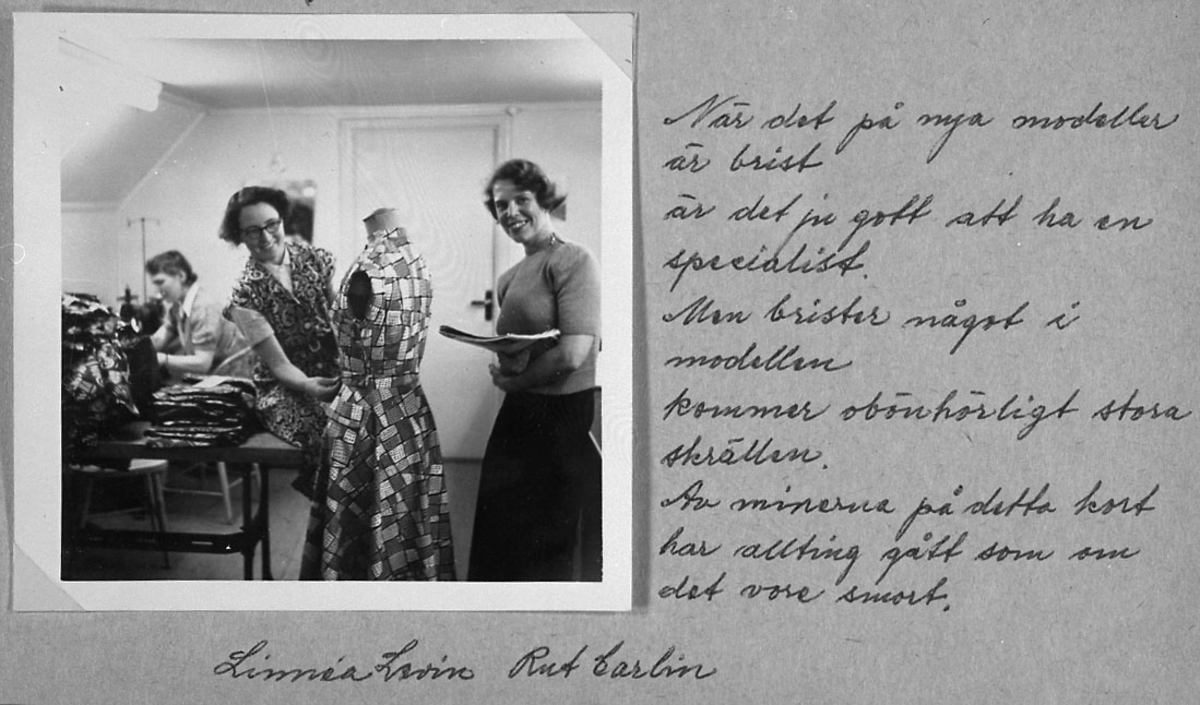 När det på nya modeller
är brist
är det ju gott att ha en
specialist.
Men brister något i
modellen
kommer obönhörligt stora
skrällen.
Av minerna på detta kort
har allting gått som om
det vore smort.
Linnéa Levin Rut Carlin